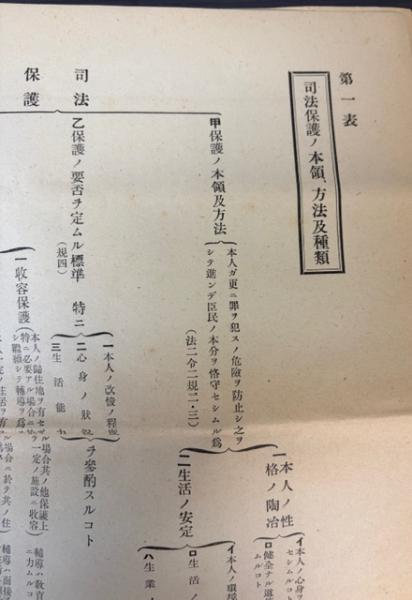 第一表
司法保護ノ本領、方法及種類
司法
保護
甲保護ノ本領及方法
本人ガ更ニ罪ヲ犯スノ危險ヲ防止シ之ヲ
シテ進ンデ臣民ノ本分ヲ恪守セシムル爲
(法二令二規二・三)
一本人ノ性
格ノ陶冶
イ本人ノ心身ヲ
セシムルコト
ロ健全ナル道
ムルコト
二生活ノ安定
イ本人ノ環
ロ生活ノ
ハ生業
乙保護ノ要否ヲ定ムル標準 特ニ
(規四)
一本人ノ改悛ノ程
二心身ノ狀
三生活能力
ヲ參酌スルコト
一收容保護
本人ノ歸住地ヲ有セザル場合其ノ他保護上
特ニ必要アル場合ニ於テ一定ノ施設ニ收容
シ
輔導ヲ爲
輔導ハ敎育
ニ力ムルコ
輔導ハ面接